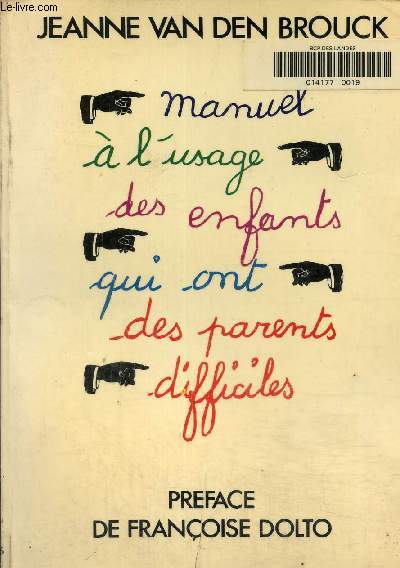 Le-livre.com
JEANNE VAN DEN BROUCK
BCP DES LANDES
014177 0019
manuel
à l'usage
des enfants
qui ont
des parents
difficiles
PREFACE
DE FRANÇOISE DOLTO